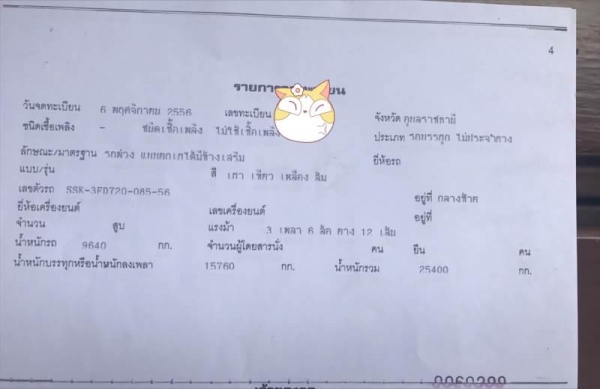 4
รายการจดทะเบียน
วันจดทะเบียน 6 พฤศจิกายน 2556 เลขทะเบียน จังหวัด
ชนิดเชื้อเพลิง - ไม่ใช้เชื้อเพลิง ประเภท รถบรรทุก ไม่ประจำทาง
ลักษณะ/มาตรฐาน รถพ่วง ยี่ห้อรถ
แบบ/รุ่น สี เทา เขียว เหลือง ส้ม
เลขตัวรถ อยู่ที่ กลางซ้าย
ยี่ห้อเครื่องยนต์ เลขเครื่องยนต์ อยู่ที่
จำนวน สูบ แรงม้า 3 เพลา 6 ล้อ ยาง 12 เส้น
น้ำหนักรถ 9640 กก. จำนวนผู้โดยสารนั่ง คน ยืน คน
น้ำหนักบรรทุกหรือน้ำหนักลงเพลา 15760 กก. น้ำหนักรวม 25400 กก.